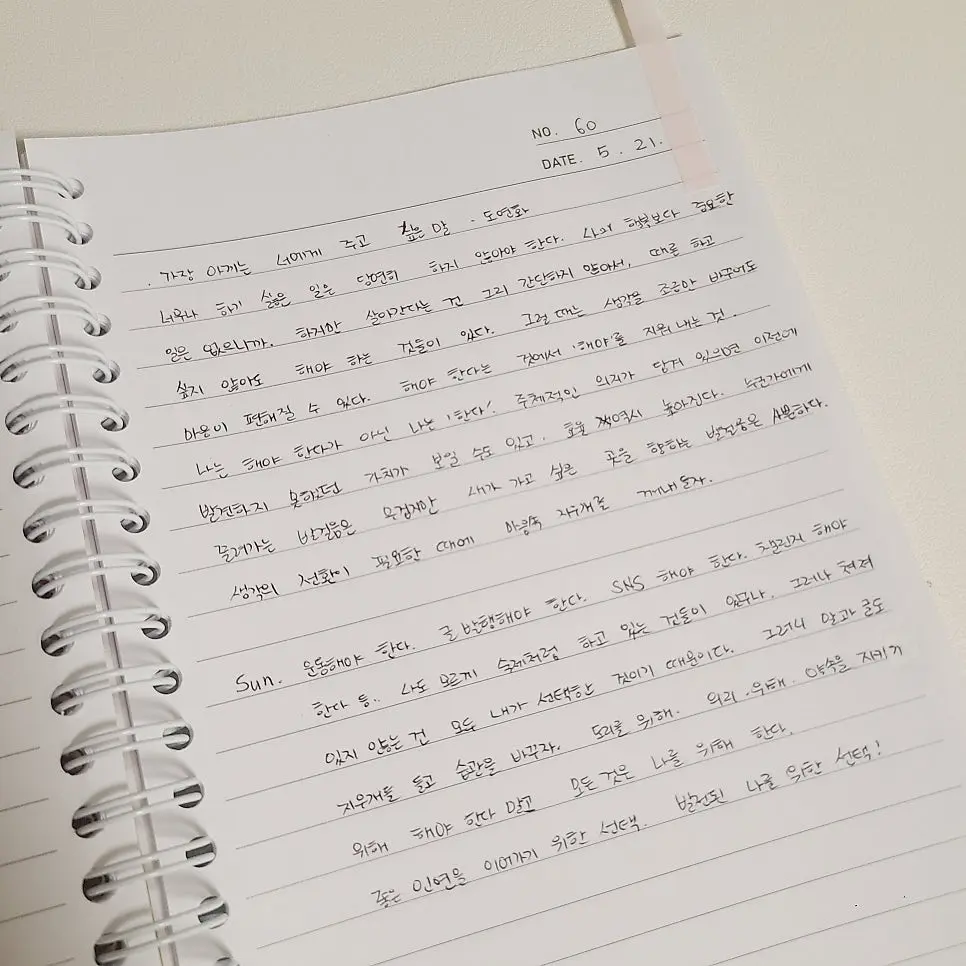 NO. 60
DATE. 5. 21.
· 가장 아끼는 너에게 주고 싶은 말 · 도연화
너무나 하기 싫은 일은 당연히 하지 않아야 한다. 나의 행복보다 중요한
일은 없으니까. 하지만 살아간다는 건 그리 간단하지 않아서, 때론 하고
싶지 않아도 해야 하는 것들이 있다. 그럴 때는 생각을 조금만 바꾸어도
마음이 편해질 수 있다. 해야 한다는 것에서 '해야'를 지워 내는 것.
나는 해야 한다가 아닌 나는 '한다'. 주체적인 의지가 담겨 있으면 이전에
발견하지 못하던 가치가 보일 수도 있고. 효율 역시 높아진다. 누군가에게
끌려가는 발걸음은 무겁지만 내가 가고 싶은 곳을 향하는 발걸음은 사뿐하다.
생각의 전환이 필요한 때에 마음속 지우개를 꺼내 온자.
Sun. 운동해야 한다. 글 발행해야 한다. SNS 해야 한다. 챌린지 해야
한다 등.. 나도 모르게 숙제처럼 하고 있는 것들이 있구나. 그러나 쳐져
있지 않는 건 모두 내가 선택한 것이기 때문이다. 그러니 말과 글도
지우개를 들고 습관을 바꾸자. 도리를 위해. 의리 위해. 약속을 지키기
위해 해야 한다 말고 모든 것은 나를 위해 한다.
좋은 인연을 이어가기 위한 선택. 발전된 나를 위한 선택!